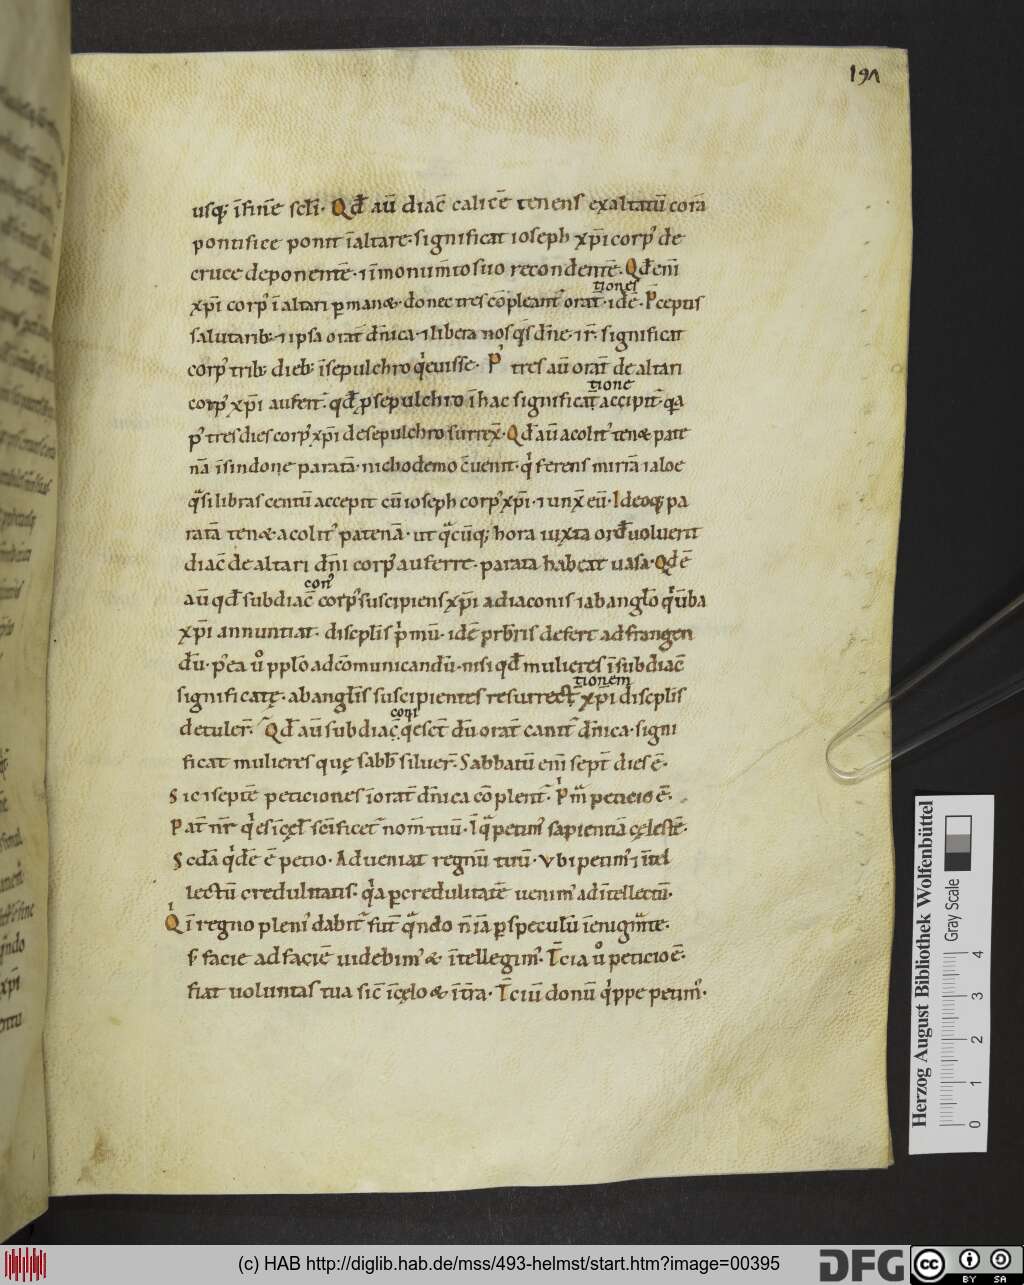 197
usq; īfinē sclī. Qđ aū diac̄ calicē tenens exaltatū corā
pontifice ponit ī altare. significat ioseph xp̄i corp' de
cruce deponentē. ⁊ ī monumto suo recondentē. Qđ enī
tiones
xp̄i corp' ī altari pmanet. donec tres cōpleant' orat̄. idē. P̄ceptis
salutarib: ⁊ ipsa orat̄ dn̄ica. ⁊ libera nos qs dn̄e. ⁊ r̄. significat
corp' trib: dieb: ī sepulchro q'euisse. P' tres aū orat̄ de altari
tione
corp' xp̄i aufert̄. qđ p sepulchro ī hac significat̄ accipit̄. q̄a
p' tres dies corp' xp̄i de sepulchro surrex̄. Qđ aū acolit' tenet pate
nā ī sindone paratā. nichodemo c̄uenit. q' ferens mirrā ⁊ aloe
q̄si libras centū accepit cū ioseph corp' xp̄i. ⁊ unx̄ eū. Ideoq; pa
ratā tenet acolit' patenā. ut q̄cūq; hora iuxta ord̄ uoluerit
diac̄ de altari dn̄i corp' auferre. parata habeat uasa. Qđ ē
con'
aū qđ subdiac̄ corp' suscipiens xp̄i a diaconis ⁊ ab angl̄o q'ūba
xp̄i annuntiat. discpl̄is p'mū. idē prb̄ris defert ad frangen
dū. p' ea ů ppl̄o ad cōmunicandū. nisi qđ mulieres ī subdiac̄
tionem
significatę. ab angl̄is suscipientes resurrect̄ xp̄i discpl̄is
coni
detuler̄. Qđ aū subdiac̄. q'esct̄ dū orat̄ canit̄ dn̄ica. signi
ficat mulieres quę sabb̄ siluer̄. Sabbatū enī sept̄ dies ē.
Sic ⁊ septē peticiones ī orat̄ dn̄ica cōplent̄. P'm̄ peticio ē.
Pat̄ nr̄ q' es ī cęl̄ sc̄ificet' nom̄ tuū. Iq̄ petim' sapientiā cęlestē.
Scdā q'dē ē petio. Adueniat regnū tuū. Vbi petim' ⁊ ītel
lectū credulitatis. q'a p credulitatē uenim' ad ītellectū.
Q' ī regno pleni' dabit' fut̄. q̄ndo n̄ iā p speculū ī enigmte.
s facie ad faciē uidebim' et ītellegim'. T̄cia ů peticio ē.
fiat uoluntas tua sic̄ ī cęlo et ī tr̄a. T̄ciū donū q'ppe petim'.
Herzog August Bibliothek Wolfenbüttel
Gray Scale
0 1 2 3 4
(c) HAB http://diglib.hab.de/mss/493-helmst/start.htm?image=00395
DFG
cc BY SA